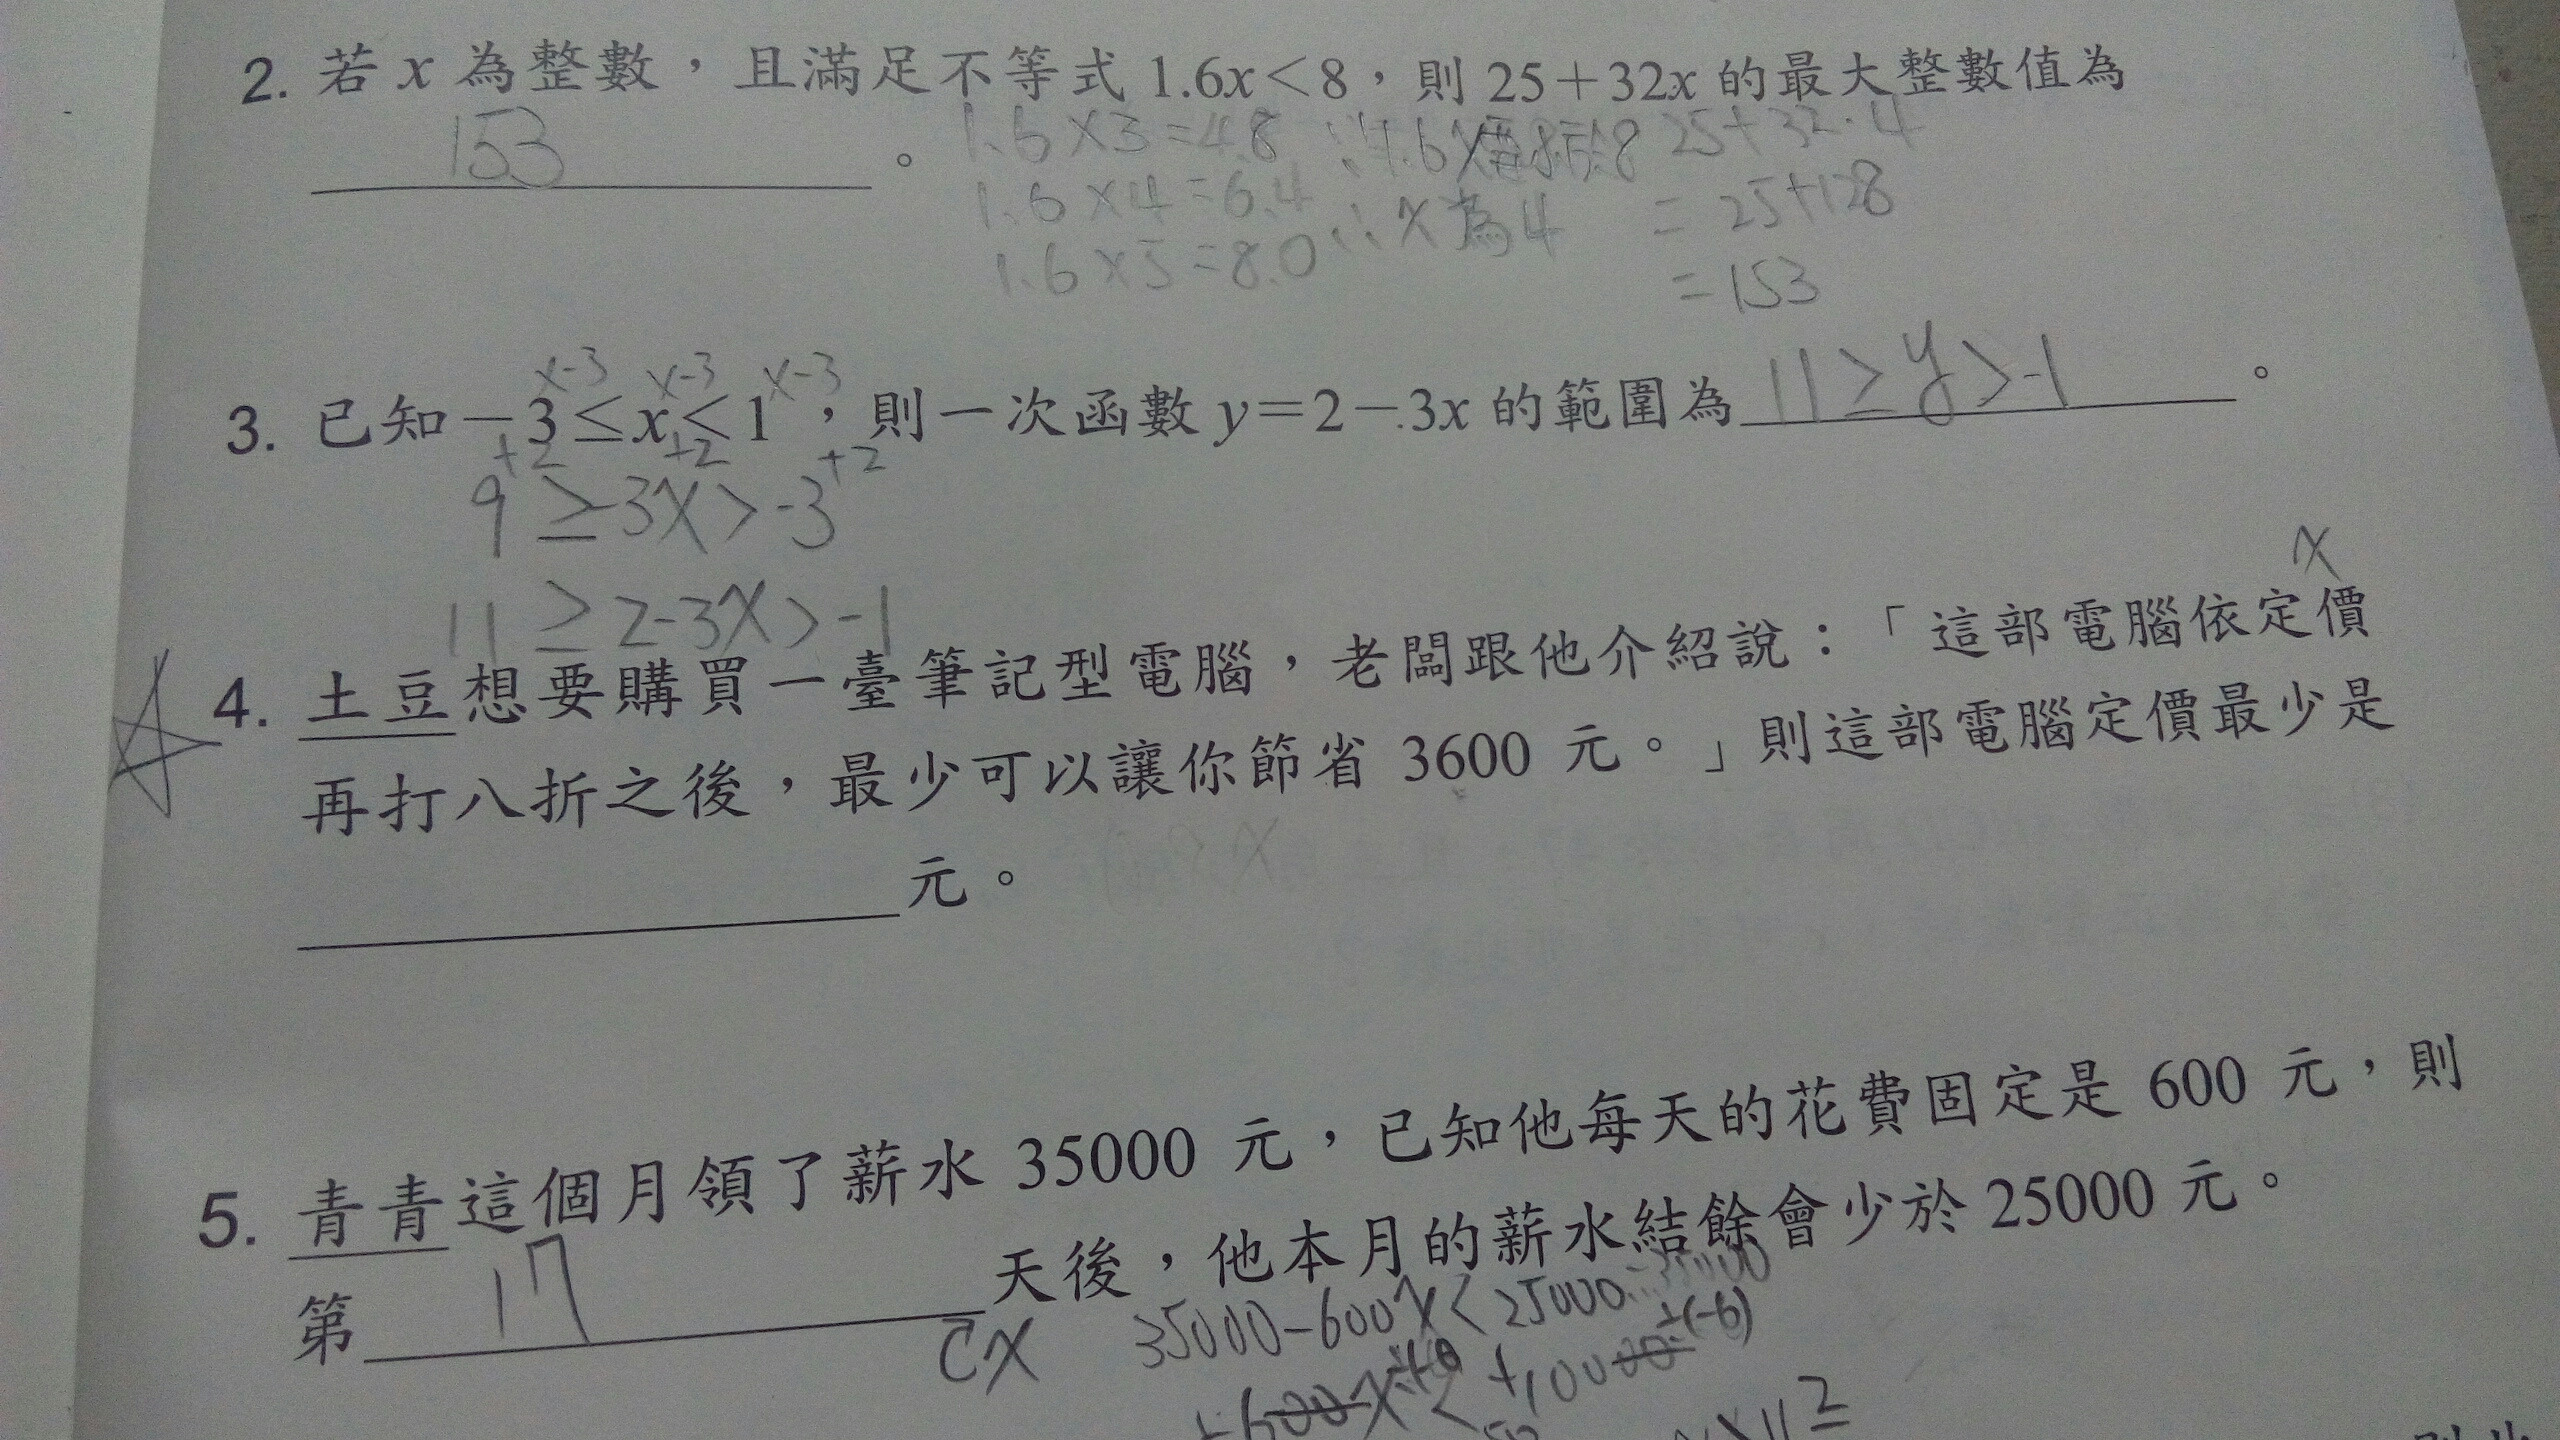 2. 若 x 為整數，且滿足不等式 1.6x＜8，則 25＋32x 的最大整數值為
153 。
1.6×3=4.8
1.6×4=6.4
1.6×5=8.0
∴x為4
25+32·4
=25+128
=153
×-3 ×-3 ×-3
3. 已知－3≤x＜1，則一次函數 y＝2－3x 的範圍為 11≥y>-1 。
+2 +2 +2
9≥-3x>-3
11≥2-3x>-1
x
4. 土豆想要購買一臺筆記型電腦，老闆跟他介紹說：「這部電腦依定價
再打八折之後，最少可以讓你節省 3600 元。」則這部電腦定價最少是
元。
5. 青青這個月領了薪水 35000 元，已知他每天的花費固定是 600 元，則
第 17 天後，他本月的薪水結餘會少於 25000 元。
x
35000-600x<25000-35000